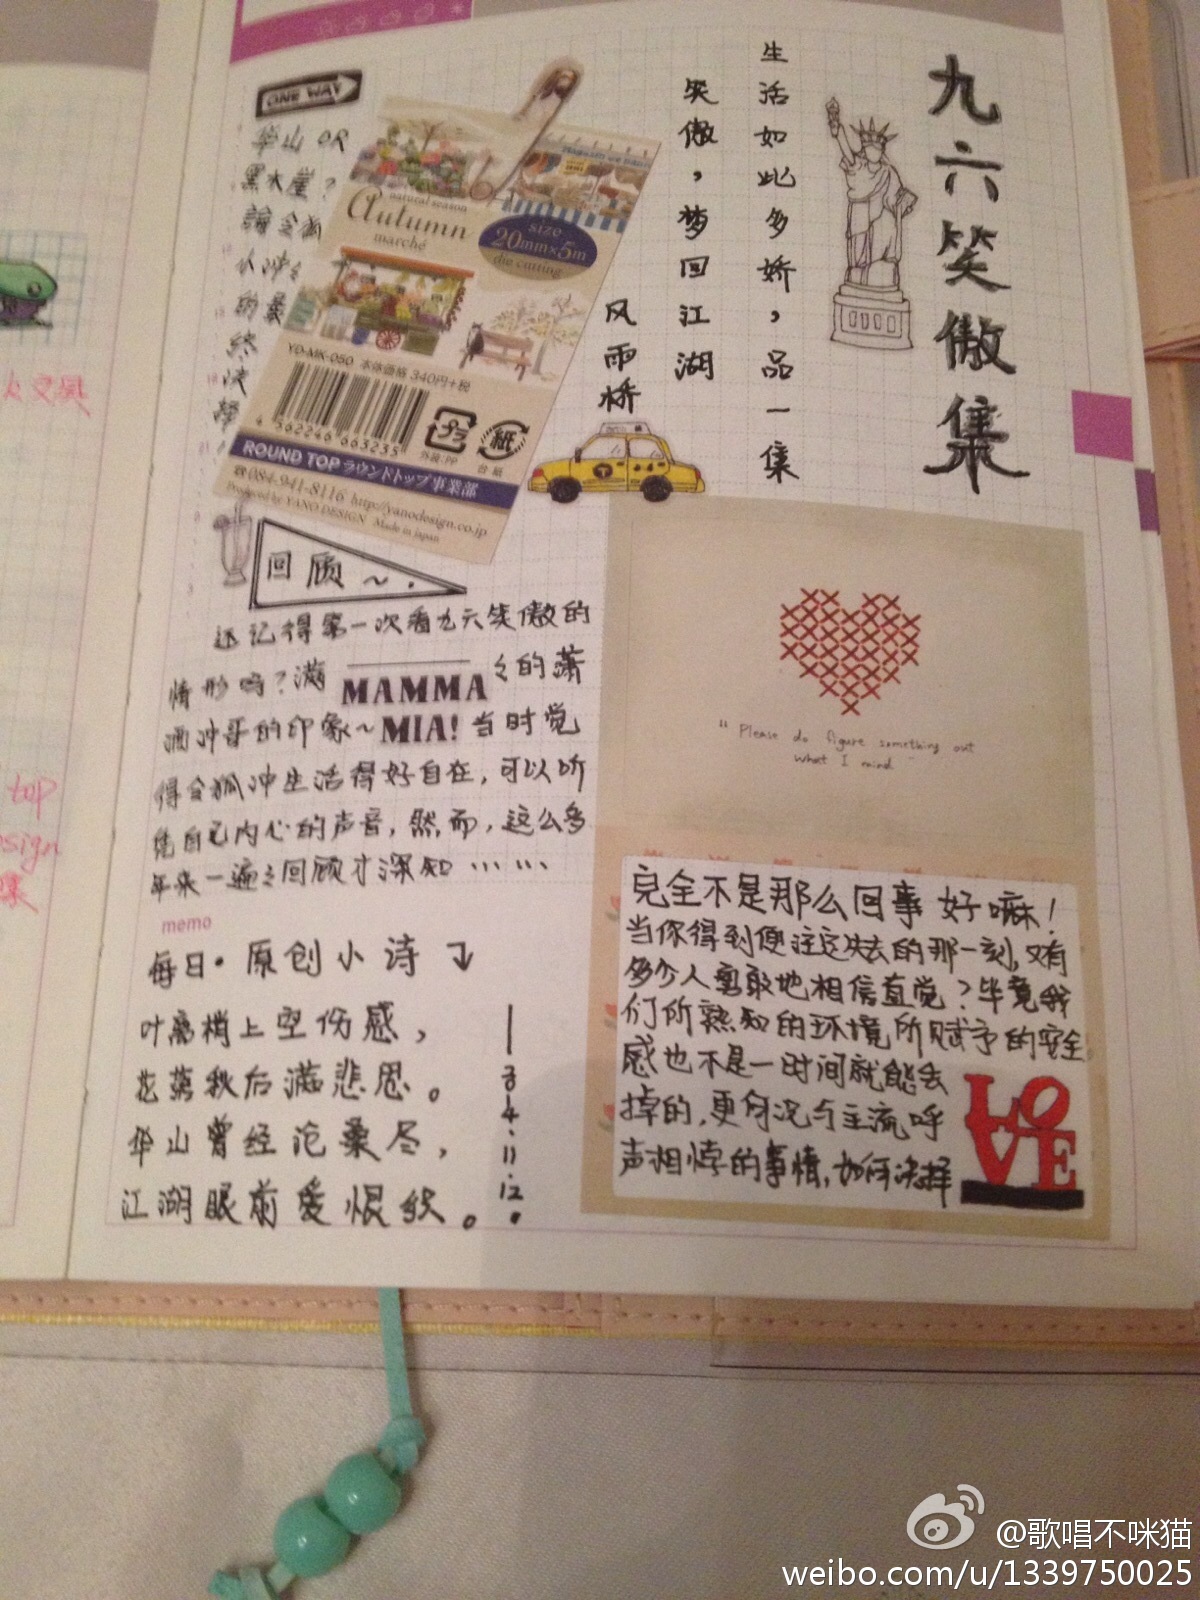 九六笑傲集
生活如此多娇，品一集
笑傲，梦回江湖
风雨桥
ONE WAY
华山 OR
黑木崖？
论令狐
小冲
的最
终
决
择
natural season
Autumn
marché
size
20mm×5m
die cutting
YD-MK-050 本体価格 340円+税
4 562246 663235
プラ
外装:PP
紙
台紙
ROUND TOP ラウンドトップ事業部
☎084-941-8116 http://yanodesign.co.jp
Produced by YANO DESIGN Made in japan
回顾～.
还记得第一次看九六笑傲的
情形吗？满 MAMMA 的萧
洒冲哥的印象~ MIA! 当时觉
得令狐冲生活得好自在，可以听
凭自己内心的声音，然而，这么多
年来一遍遍回顾才深知……
memo
每日·原创小诗
叶离梢上空伤感，
花落秋后满悲思。
华山曾经沧桑尽，
江湖眼前爱恨纹。
"Please do figure something out
what I mind"
完全不是那么回事好嘛！
当你得到便注定失去的那一刻，又有
多少人勇敢地相信直觉？毕竟我
们所熟知的环境所赋予的安全
感也不是一时间就能丢
掉的，更何况与主流呼
声相悖的事情，如何决择
LOVE
文具
top
sign
@歌唱不咪猫
weibo.com/u/1339750025